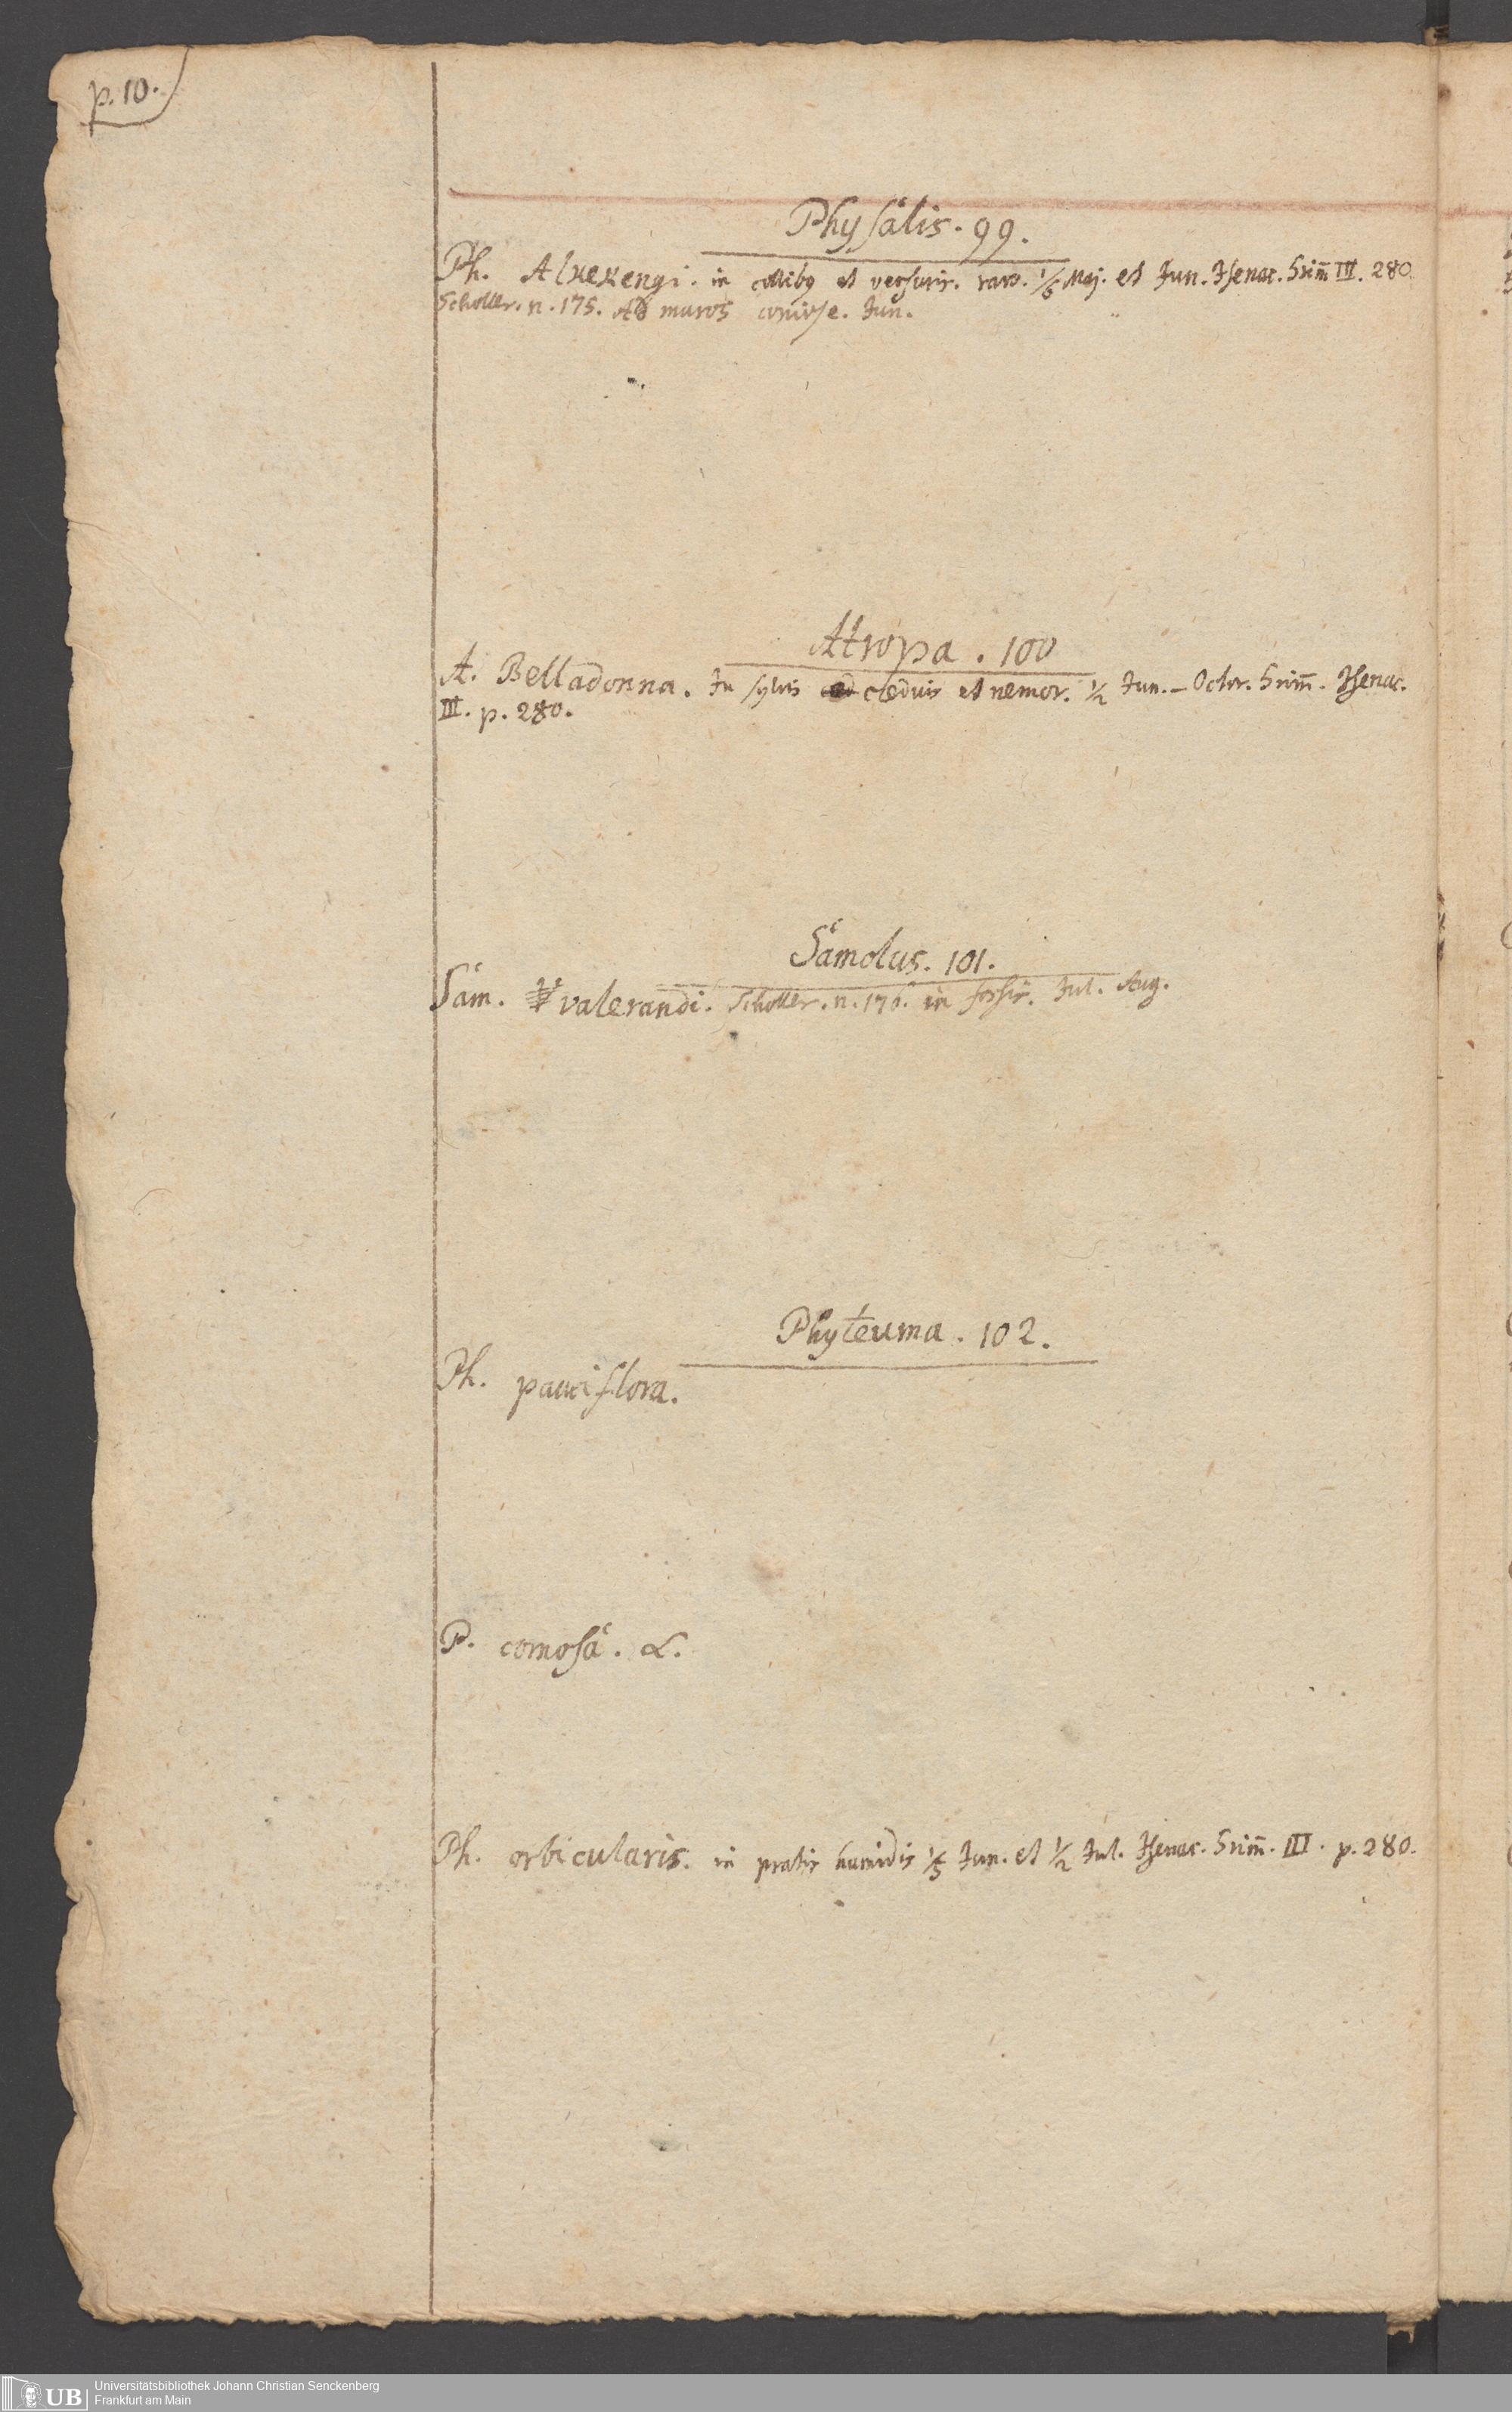 p. 10.
Physalis. 99.
Ph. Alkekengi. in collibq et versuris. raro. 1/5 Maj. et Jun. Isenac. Grim̄ III. 280.
Scholler. n. 175. Ad muros Jun.
Atropa. 100
A. Belladonna. In sylvis cæduis et nemor. 1/2 Jun. - Octbr. Grim̄. Isenac.
III. p. 280.
Samolus. 101.
Sam. valerandi. Scholler. n. 176. in fossis. Jul. Aug.
Phyteuma. 102.
Ph. pauciflora.
P. comosa. α.
Ph. orbicularis. in pratis humidis 1/3 Jun. et 1/2 Jul. Isenac. Grim̄. III. p. 280.
UB
Universitätsbibliothek Johann Christian Senckenberg
Frankfurt am Main